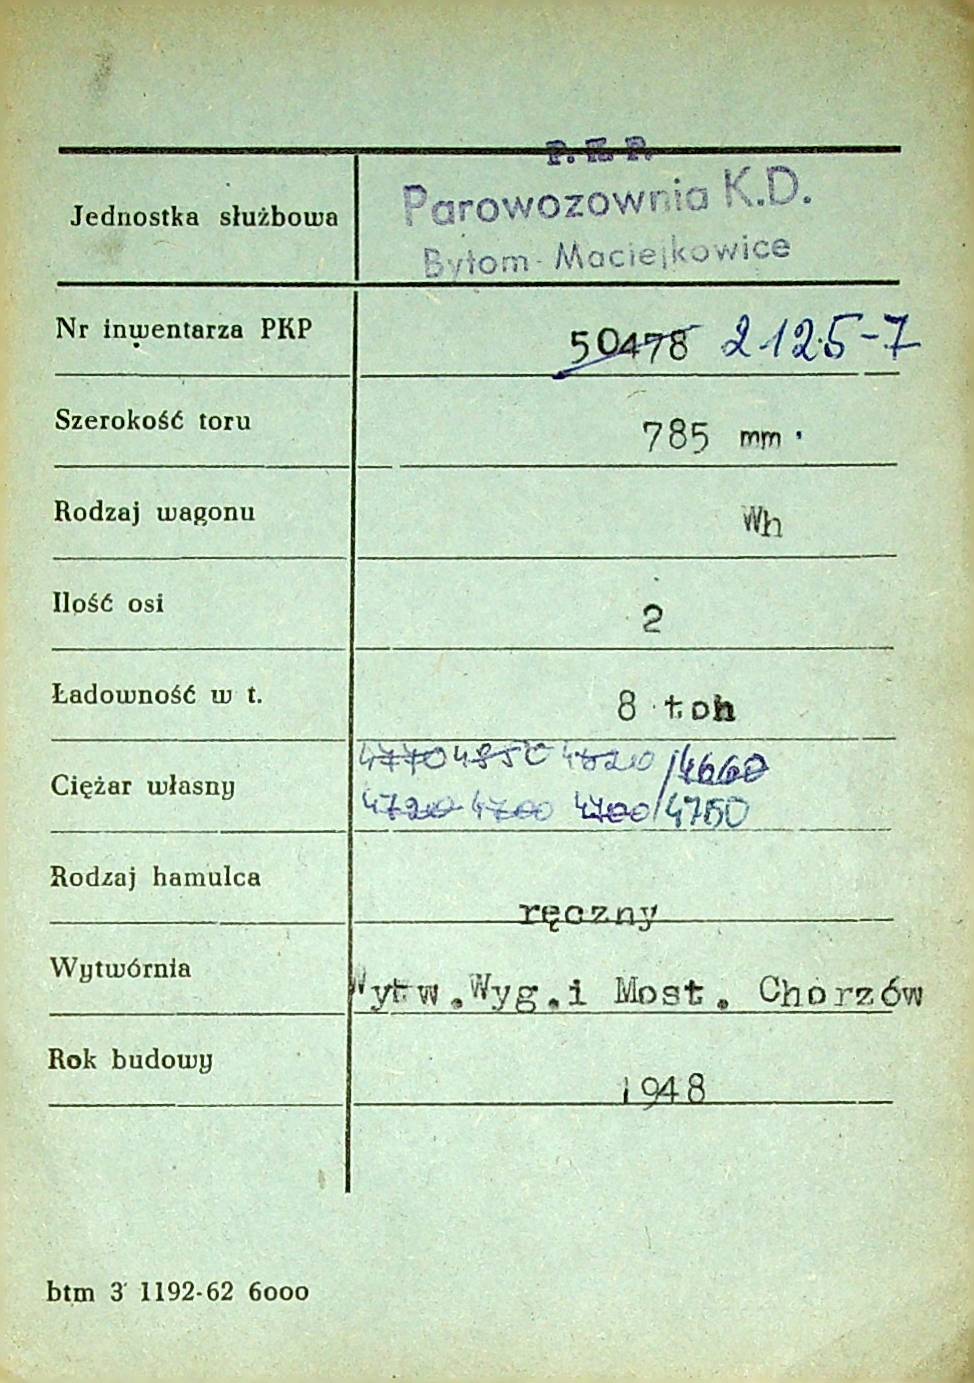 P. K. P.
Jednostka służbowa Parowozownia K.D.
Bytom - Maciejkowice
Nr inwentarza PKP 50478 2125-7
Szerokość toru 785 mm.
Rodzaj wagonu Wh
Ilość osi 2
Ładowność w t. 8 ton
4770 4850 4820 /4660
Ciężar własny
4720 4700 4700/4750
Rodzaj hamulca ręczny
Wytwórnia Wytw.Wyg.i Most. Chorzów
Rok budowy 1948
btm 3 1192-62 6000